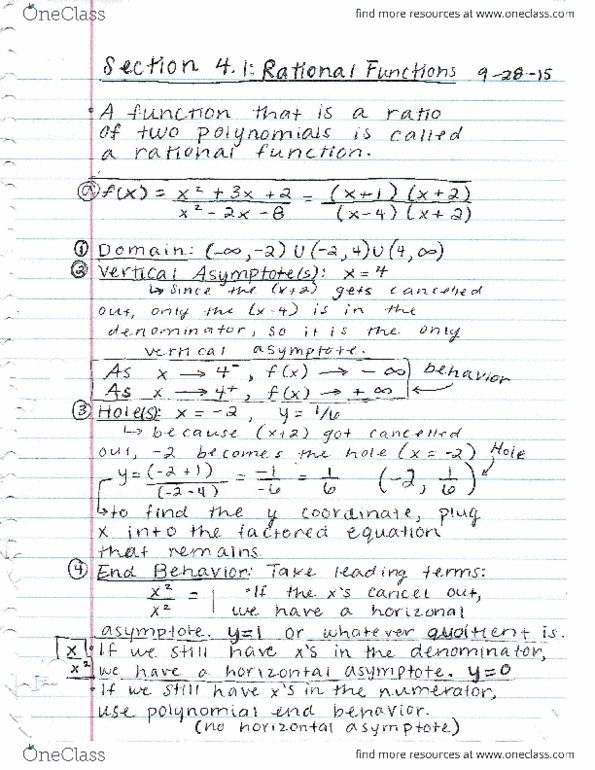 OneClass
find more resources at www.oneclass.com
Section 4.1: Rational Functions 9-28-15
• A function that is a ratio
of two polynomials is called
a rational function.
ⓐ f(x) = x² + 3x + 2 / x² - 2x - 8 = (x+1)(x+2) / (x-4)(x+2)
① Domain: (-∞, -2) ∪ (-2, 4) ∪ (4, ∞)
② Vertical Asymptote(s): x = 4
↳ Since the (x+2) gets cancelled
out, only the (x-4) is in the
denominator, so it is the only
vertical asymptote.
As x → 4⁻, f(x) → -∞ behavior
As x → 4⁺, f(x) → +∞ ←
③ Hole(s): x = -2, y = 1/6
↳ because (x+2) got cancelled
out, -2 becomes the hole (x = -2) Hole
y = (-2+1) / (-2-4) = -1 / -6 = 1 / 6 (-2, 1/6)
↳ to find the y coordinate, plug
x into the factored equation
that remains.
④ End Behavior: Take leading terms:
x² / x² = 1 • If the x's cancel out,
we have a horizonal
asymptote. y=1 or whatever quotient is.
x / x² • If we still have x's in the denominator,
we have a horizontal asymptote. y=0
• If we still have x's in the numerator,
use polynomial end behavior.
(no horizontal asymptote)
OneClass
find more resources at www.oneclass.com